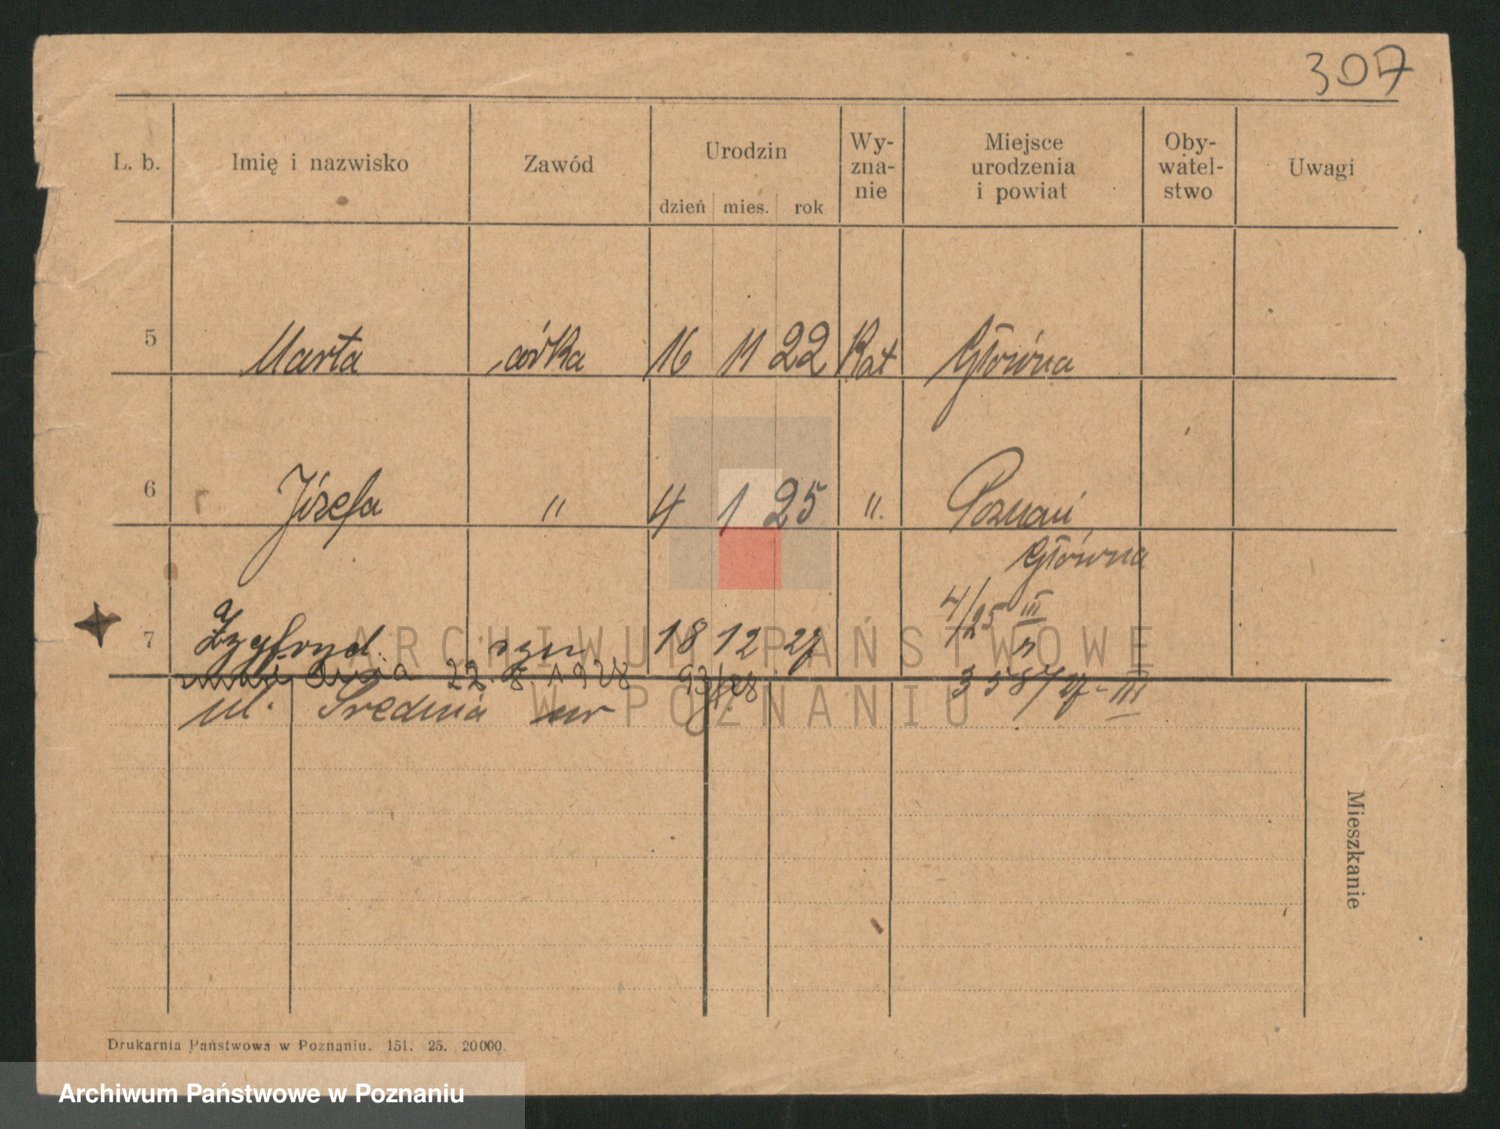 307
L. b. Imię i nazwisko Zawód Urodzin Wy-zna-nie Miejsce urodzenia i powiat Oby-watel-stwo Uwagi
dzień mies. rok
5 Marta córka 16 11 22 Kat Główna
6 Józefa " 4 1 25 " Poznań
Główna
4/25 III
7 Zygfryd syn 18 12 27 "
zmarł dnia 22. 8 1928 93/28 3587/27-III
ul. Średnia nr
Mieszkanie
Drukarnia Państwowa w Poznaniu. 151. 25. 20000.
ARCHIWUM PAŃSTWOWE
W POZNANIU
Archiwum Państwowe w Poznaniu